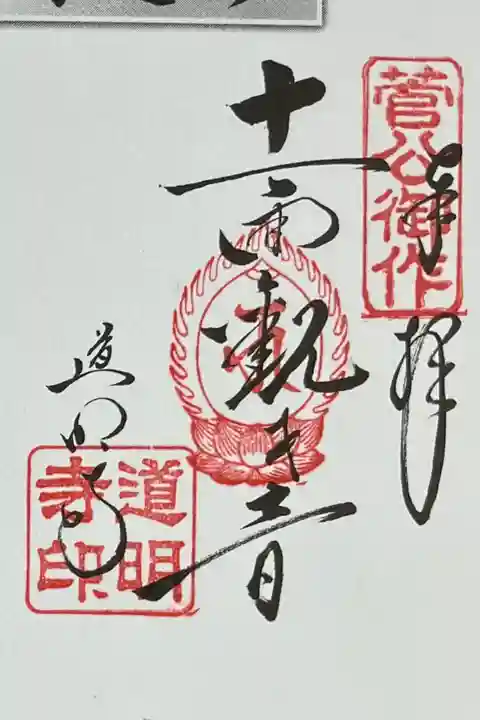 奉拝
菅公御作
十一面観世音
道明寺
道明寺印